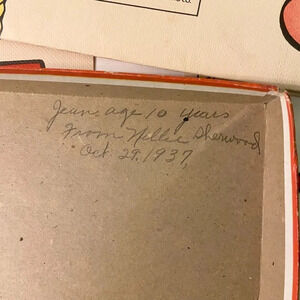 Jean, age 10 years
From Nellie Sherwood
Oct. 29, 1937